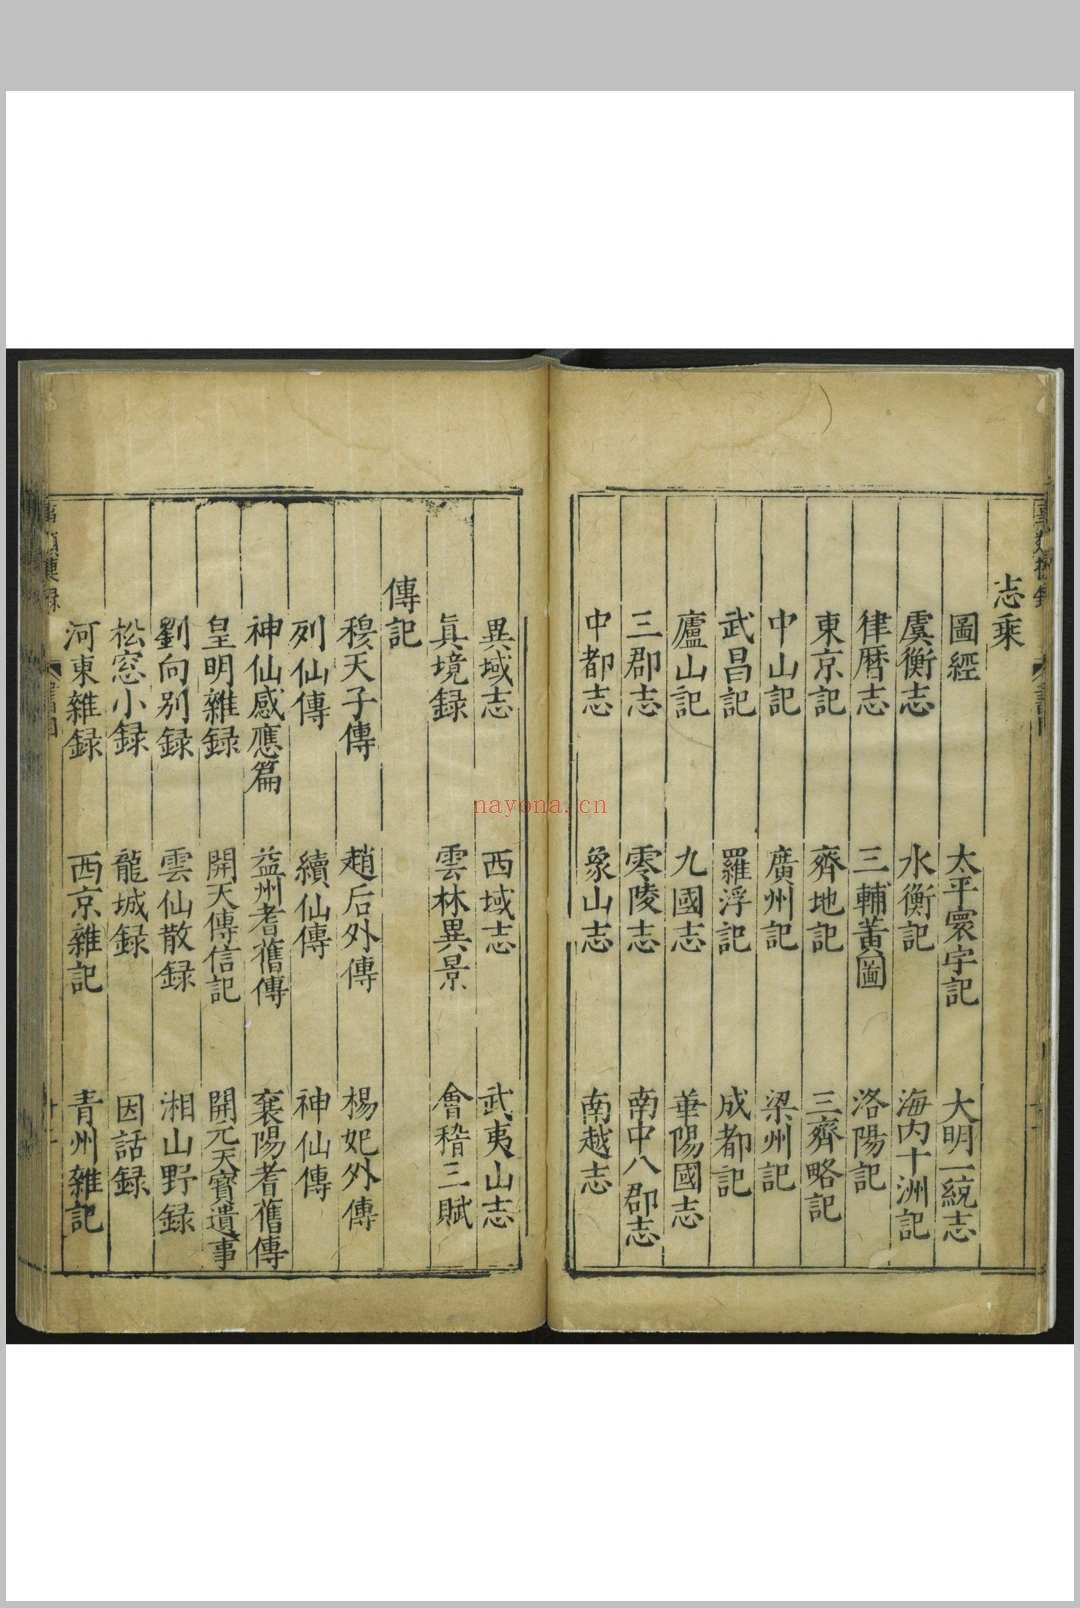 志乘
圖經 太平寰宇記 大明一統志
虞衡志 水衡記 海内十洲記
律曆志 三輔黃圖 洛陽記
東京記 齊地記 三齊略記
中山記 廣州記 梁州記
武昌記 羅浮記 成都記
廬山記 九國志 華陽國志
三郡志 零陵志 南中八郡志
中都志 象山志 南越志
異域志 西域志 武夷山志
眞境録 雲林異景 會稽三賦
傳記
穆天子傳 趙后外傳 楊妃外傳
列仙傳 續仙傳 神仙傳
神仙感應篇 益州耆舊傳 襄陽耆舊傳
皇明雜録 開天傳信記 開元天寶遺事
劉向别録 雲仙散録 湘山野録
松窓小録 龍城録 因話録
河東雜録 西京雜記 青州雜記
nayona.cn